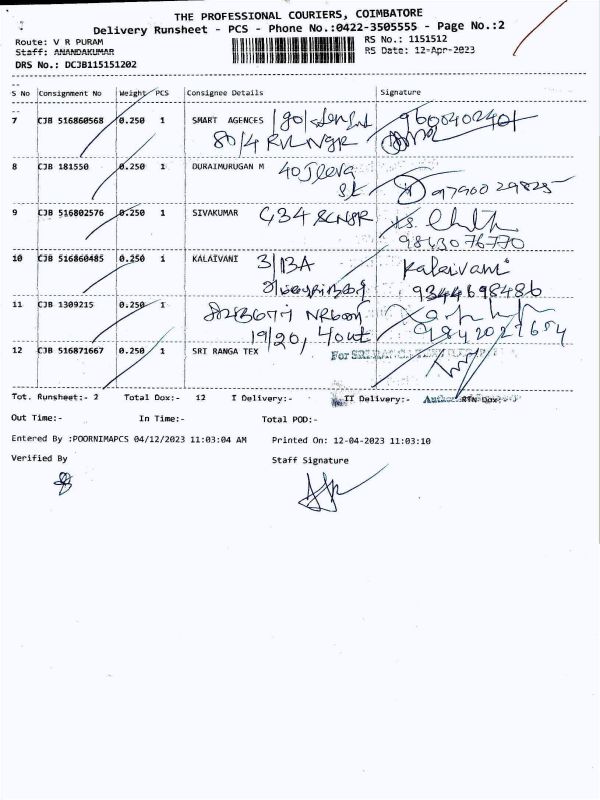 THE PROFESSIONAL COURIERS, COIMBATORE
Delivery Runsheet - PCS - Phone No.:0422-3505555 - Page No.:2
Route: V R PURAM
RS No.: 1151512
Staff: ANANDAKUMAR
RS Date: 12-Apr-2023
DRS No.: DCJB115151202
S No Consignment No Weight PCS Consignee Details Signature
7 CJB 516860568 0.250 1 SMART AGENCES
80/4 RVL NGR
9600402401
8 CJB 181550 0.250 1 DURAIMURUGAN M 40
9790029825
9 CJB 516802576 0.250 1 SIVAKUMAR
9843076770
10 CJB 516860485 0.250 1 KALAIVANI 3/13A Kalaivani
9344698486
11 CJB 1309215 0.250 1
19/20, 4 out
9842027654
12 CJB 516871667 0.250 1 SRI RANGA TEX For SRI RANGA
Tot. Runsheet:- 2 Total Dox:- 12 I Delivery:- II Delivery:- RTN Dox:-
Out Time:- In Time:- Total POD:-
Entered By :POORNIMAPCS 04/12/2023 11:03:04 AM Printed On: 12-04-2023 11:03:10
Verified By Staff Signature